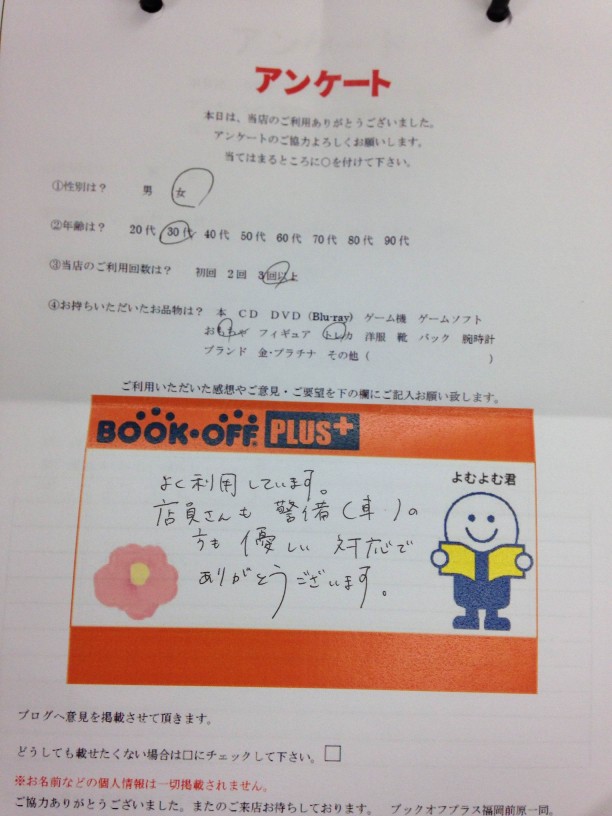 アンケート
本日は、当店のご利用ありがとうございました。
アンケートのご協力よろしくお願いします。
当てはまるところに○を付けて下さい。
①性別は？ 男 女
②年齢は？ 20代 30代 40代 50代 60代 70代 80代 90代
③当店のご利用回数は？ 初回 2回 3回以上
④お持ちいただいたお品物は？ 本 CD DVD(Blu-ray) ゲーム機 ゲームソフト
おもちゃ フィギュア トレカ 洋服 靴 バック 腕時計
ブランド 金・プラチナ その他（ ）
ご利用いただいた感想やご意見・ご要望を下の欄にご記入お願い致します。
BOOK・OFF PLUS+
よむよむ君
よく利用しています。
店員さんも 警備（車）の
方も 優しい 対応で
ありがとうございます。
ブログへ意見を掲載させて頂きます。
どうしても載せたくない場合は□にチェックして下さい。□
※お名前などの個人情報は一切掲載されません。
ご協力ありがとうございました。またのご来店お待ちしております。 ブックオフプラス福岡前原一同。